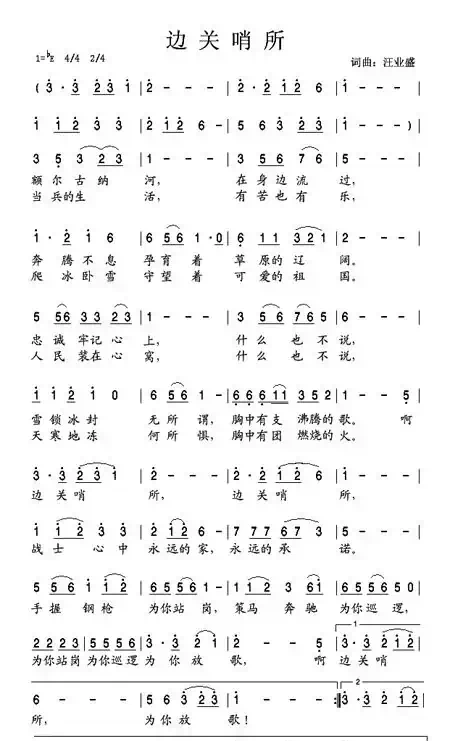 边关哨所
1=♭E 4/4 2/4 词曲：汪业盛
(3·3 2 3 1 | 2 - - - | 2·2 1 2 6 | 1 - - - |
1 1 2 3 3 | 2 1 2 6 - | 5 6 3 2 3 | 1 - - -)
3 5 3 2 3 | 1 - - - | 3 5 6 7 6 | 5 - - - |
额尔古纳 河， 在身边流 过，
当兵的生 活， 有苦也有 乐，
1·2 1 6 | 6 5 6 1·0 | 6 1 1 3 2 1 | 2 - - - |
奔腾不息 孕育着 草原的辽 阔。
爬冰卧雪 守望着 可爱的祖 国。
5 5 6 3 3 2 3 | 1 - - - | 3 5 6 7 6 5 | 6 - - - |
忠诚牢记心 上， 什么也不说，
人民装在心 窝， 什么也不说，
1 1 2 1 0 | 6 5 6 1 - | 6 6 6 1 1 3 5 2 | 1 - - 5 |
雪锁冰封 无所谓，胸中有支 沸腾的歌。 啊
天寒地冻 何所惧，胸中有团 燃烧的火。
3·3 2 3 1 | 2 - - - | 2·2 1 2 6 | 1 - - - |
边关哨 所， 边关哨 所，
1 1 2 3 3 | 2 2 1 2 - | 7 7 7 6 7 3 | 5 - - - |
战士 心中 永远的家，永远的承 诺。
5 5 6 1 1 2 | 6 5 5 6 1 - | 1 1 2 3 6 1 | 6 5 5 6 5 0 |
手握 钢枪 为你站岗，策马 奔驰 为你巡逻，
2 2 2 3 5 5 5 6 | 3·3 2 1 | 2 - - 5 | 1 3·3 2 1 2 |
为你站岗 为你巡逻 为你放 歌， 啊 边关哨
6 - - - | 5 6 3 2 3 | 1 - - - :‖ 2 3·3 2 1 2 |
所， 为你放 歌！